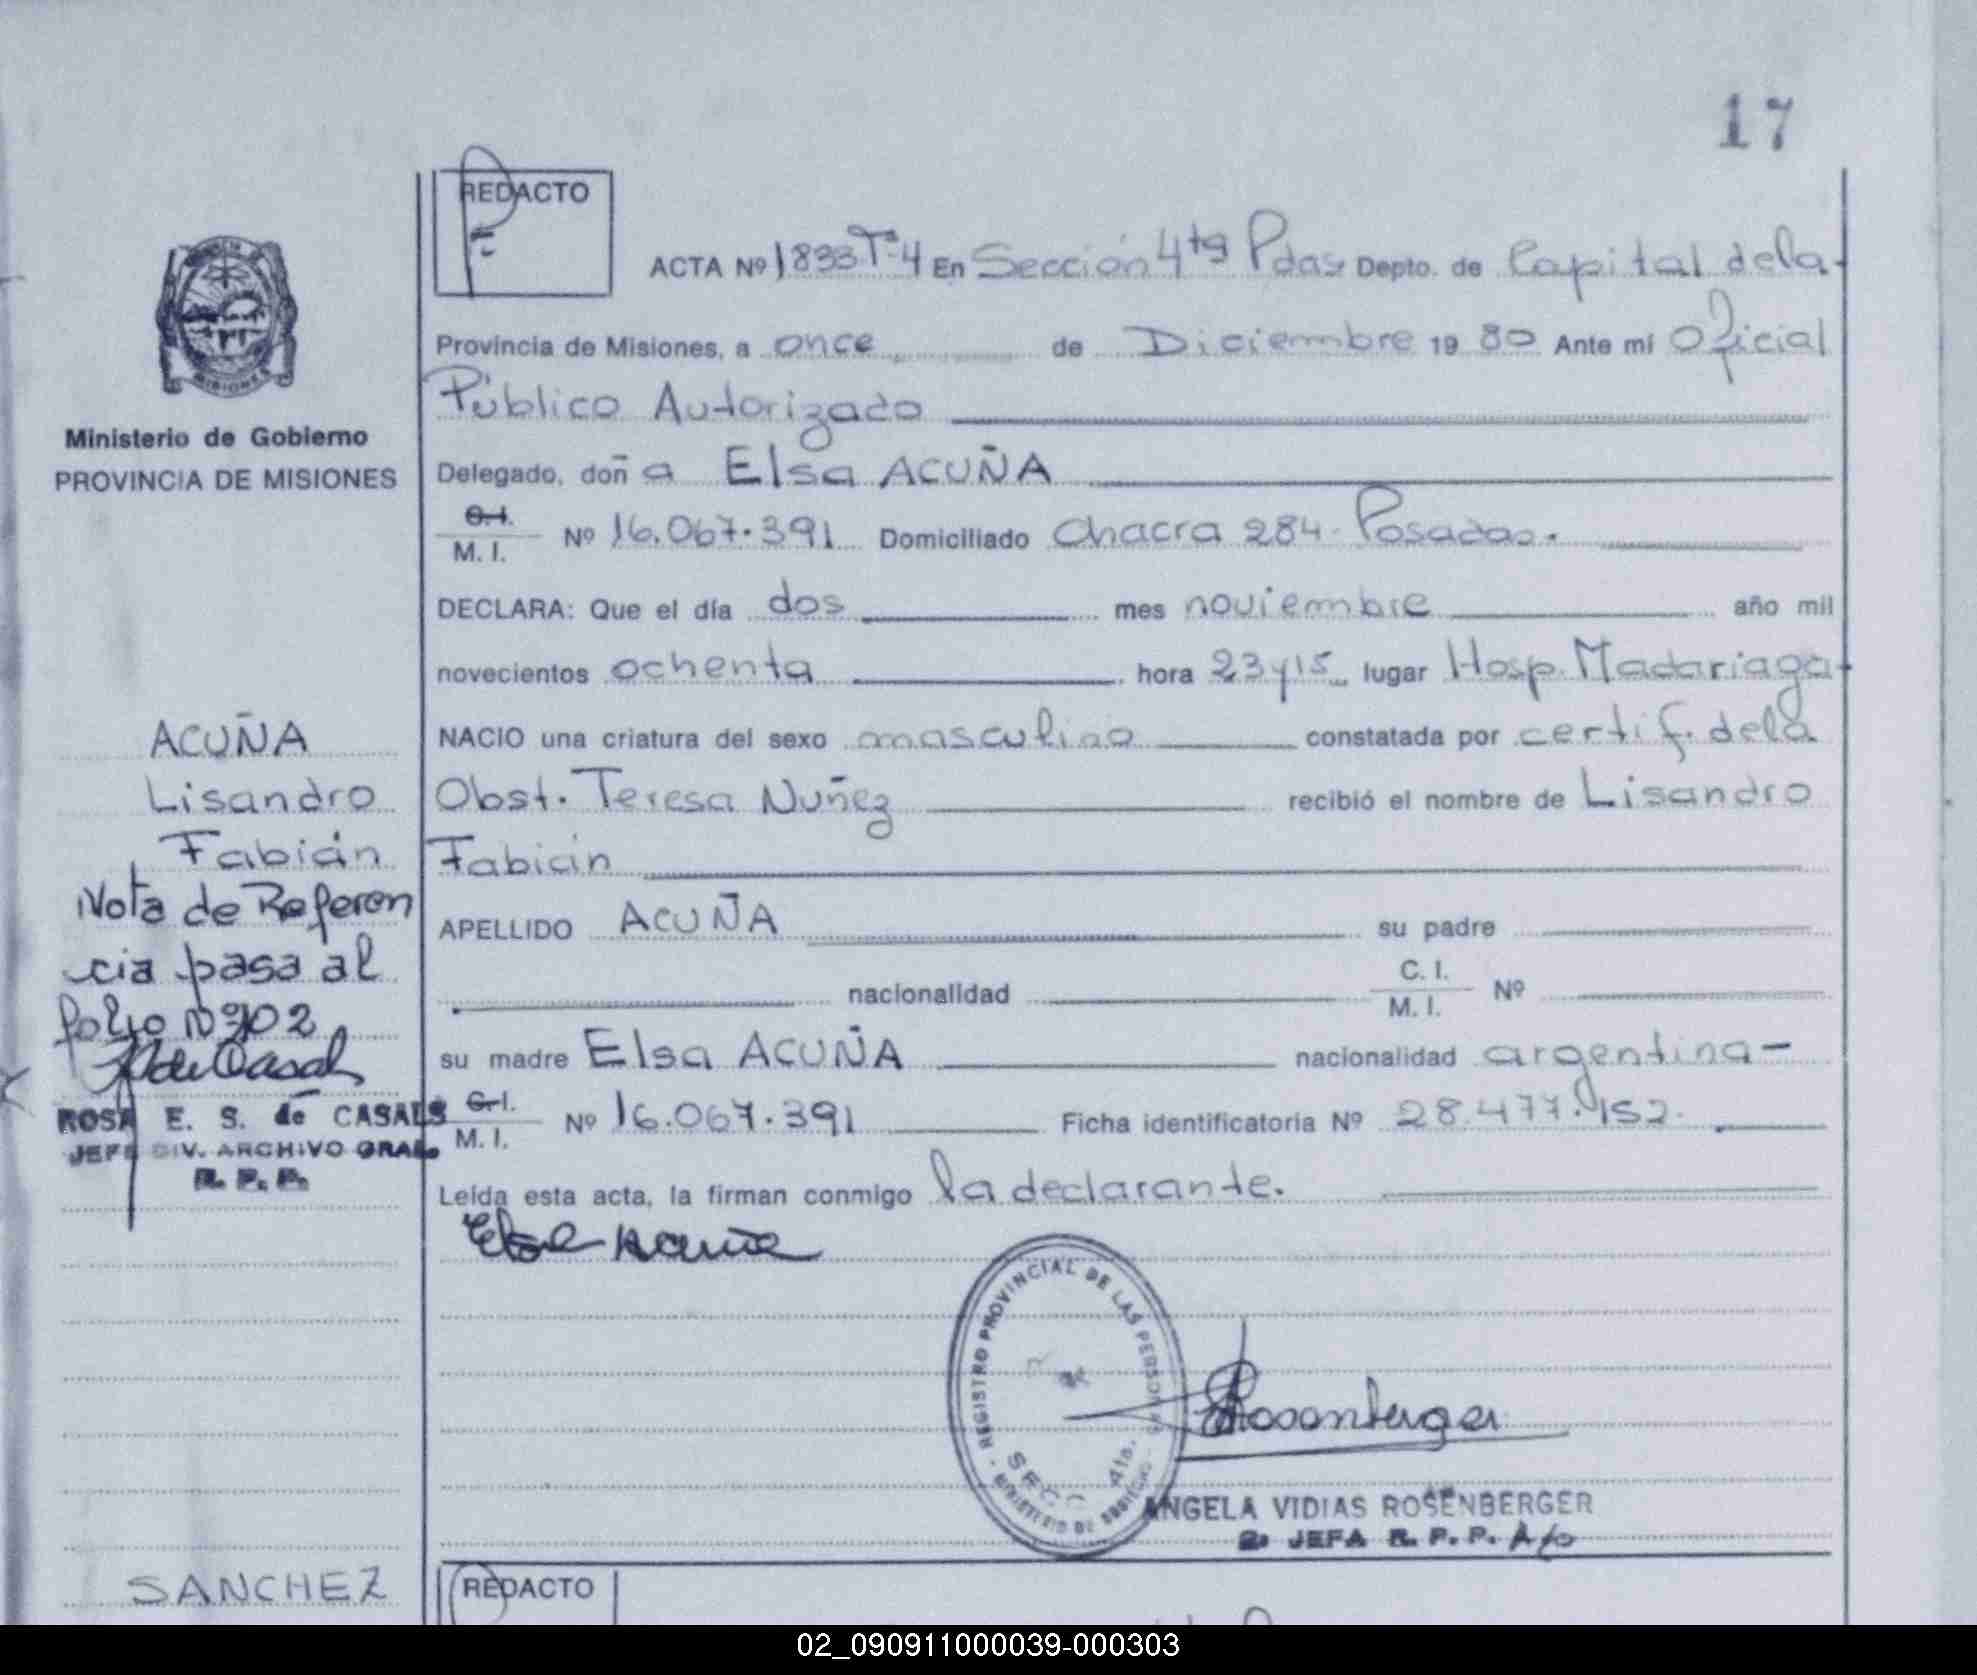 17
REDACTO
ACTA Nº 1833 Tº 4 En Sección 4ta Pdas. Depto. de Capital de la
Provincia de Misiones, a once de Diciembre 19 80 Ante mí Oficial
Público Autorizado
Delegado, doña Elsa ACUÑA
C. I.
M. I. Nº 16.067.391 Domiciliado Chacra 284 - Posadas.
DECLARA: Que el día dos mes noviembre año mil
novecientos ochenta hora 23 y 15 lugar Hosp. Madariaga
NACIO una criatura del sexo masculino constatada por certif. de la
Obst. Teresa Nuñez recibió el nombre de Lisandro
Fabián
APELLIDO ACUÑA su padre
nacionalidad C. I.
M. I. Nº
su madre Elsa ACUÑA nacionalidad argentina -
C. I.
M. I. Nº 16.067.391 Ficha identificatoria Nº 28.477.152.
Leída esta acta, la firman conmigo la declarante.
Elsa Acuña
REGISTRO PROVINCIAL DE LAS PERSONAS
SECC 4ta.
MINISTERIO DE
Rosenberger
ANGELA VIDIAS ROSENBERGER
2º JEFA R. P. P.
Ministerio de Gobierno
PROVINCIA DE MISIONES
ACUÑA
Lisandro
Fabián
Nota de Referen
cia pasa al
folio Nº 102
ROSA E. S. de CASALS
JEFE DIV. ARCHIVO GRAL.
R. P. P.
SANCHEZ
REDACTO
02_090911000039-000303